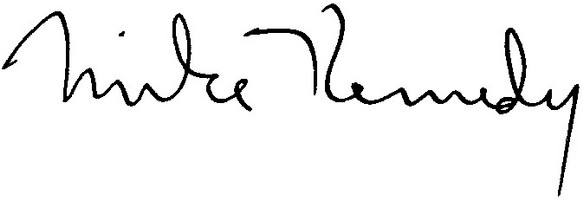 Mike Kennedy